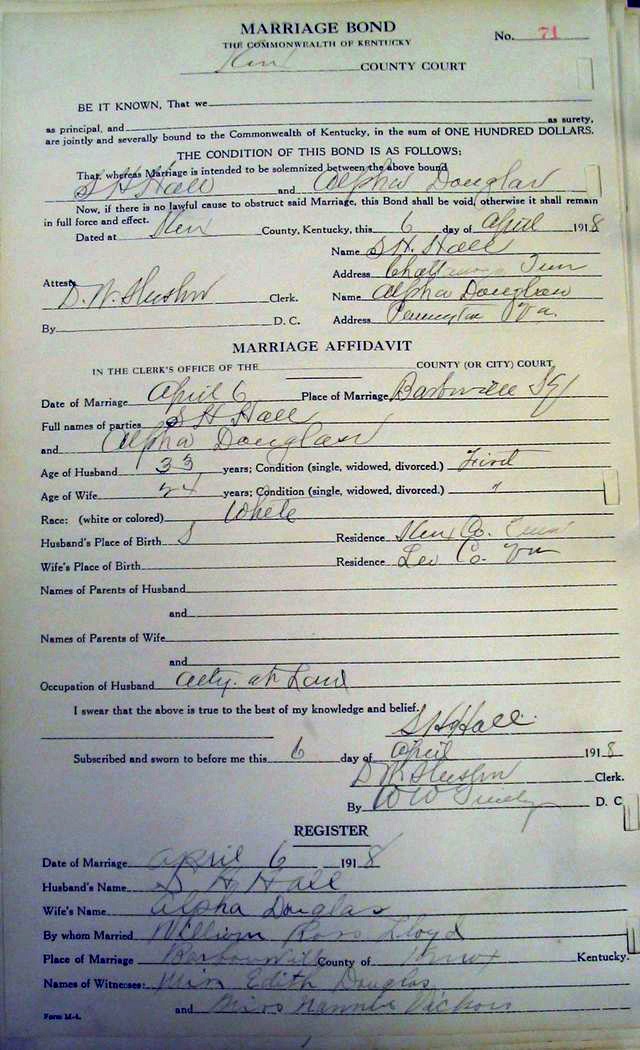 MARRIAGE BOND
THE COMMONWEALTH OF KENTUCKY
No. 71
COUNTY COURT
BE IT KNOWN, That we
as principal, and as surety,
are jointly and severally bound to the Commonwealth of Kentucky, in the sum of ONE HUNDRED DOLLARS.
THE CONDITION OF THIS BOND IS AS FOLLOWS:
That, whereas Marriage is intended to be solemnized between the above bound
S H Hall and Alpha Douglas
Now, if there is no lawful cause to obstruct said Marriage, this Bond shall be void, otherwise it shall remain
in full force and effect.
Dated at County, Kentucky, this 6 day of April 1918
Name S H. Hall
Address Tenn
Attest: Name Alpha Douglas
Clerk.
By D. C. Address Va.
MARRIAGE AFFIDAVIT
IN THE CLERK'S OFFICE OF THE COUNTY (OR CITY) COURT,
Date of Marriage April 6 Place of Marriage Ky
Full names of parties S H Hall
and Alpha Douglas
Age of Husband 33 years; Condition (single, widowed, divorced.) First
Age of Wife 24 years; Condition (single, widowed, divorced.) "
Race: (white or colored) White
Husband's Place of Birth Residence Co. Tenn
Wife's Place of Birth Residence Lee Co. Va
Names of Parents of Husband
and
Names of Parents of Wife
and
Occupation of Husband Atty. at Law
I swear that the above is true to the best of my knowledge and belief.
S H Hall.
Subscribed and sworn to before me this 6 day of April 1918
Clerk.
By W W D. C
REGISTER
Date of Marriage April 6 1918
Husband's Name S H Hall
Wife's Name Alpha Douglas
By whom Married William Ross Lloyd
Place of Marriage Barbourville County of Knox Kentucky.
Names of Witnesses: Miss Edith Douglas
and Miss Nannie
Form M-4.